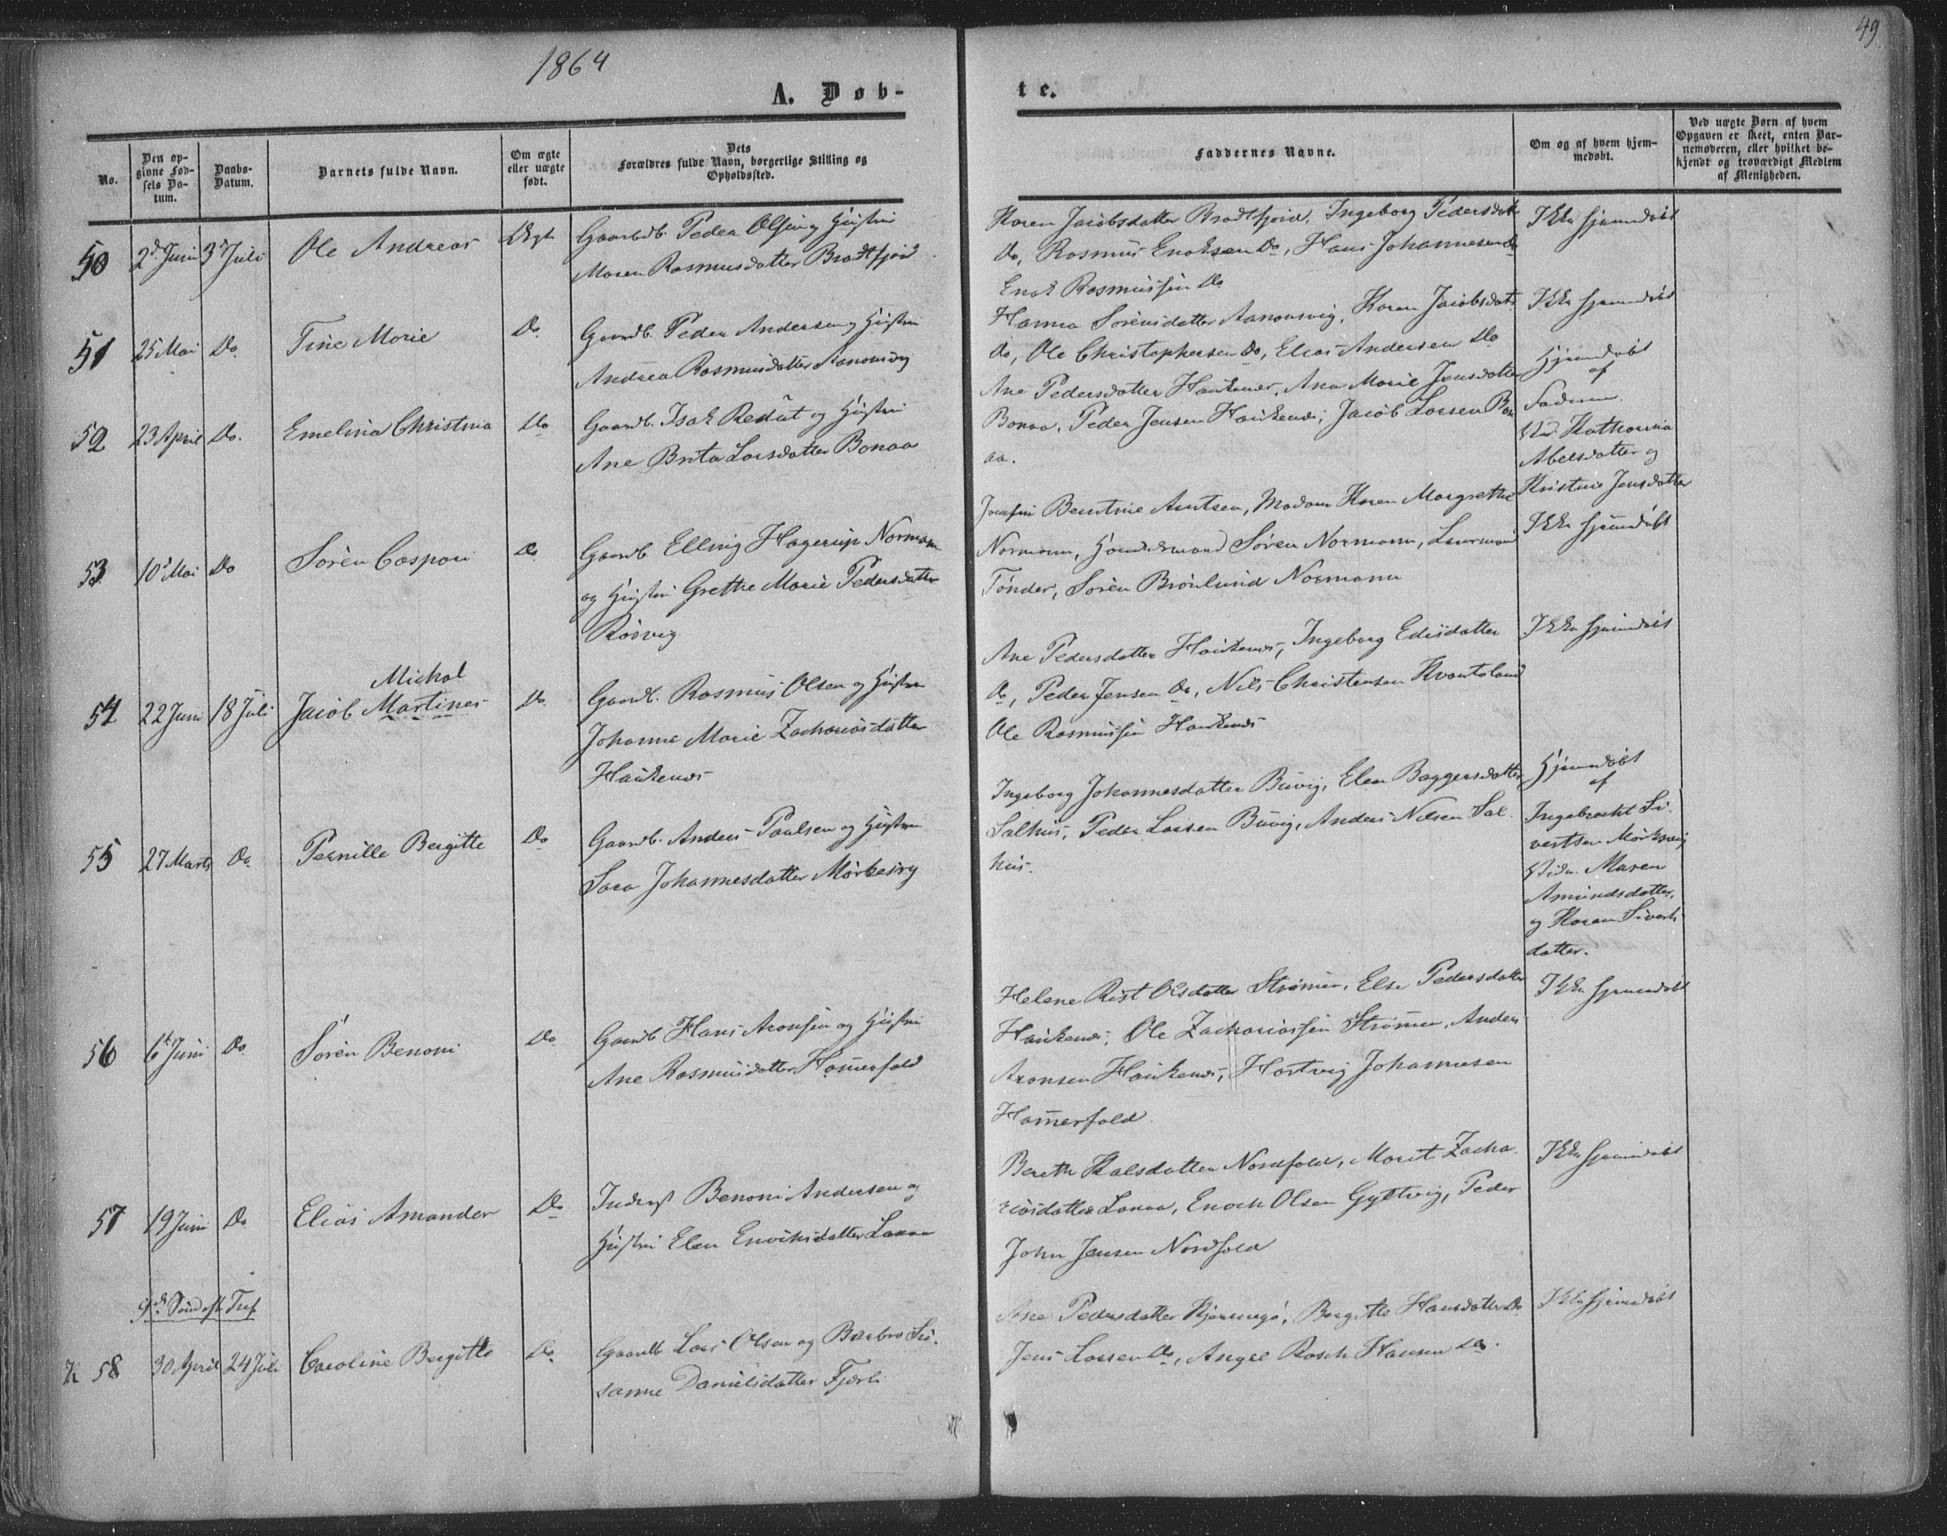 49
1864
A. Døb-
te.
No.
Den opgivne Fødsels Datum.
Daabs-Datum.
Barnets fulde Navn.
Om ægte eller uægte født.
Dets Forældres fulde Navn, borgerlige Stilling og Opholdssted.
Faddernes Navne.
Om og af hvem hjemmedøbt.
Ved uægte Børn af hvem Opgaven er skeet, enten Barnemoderen, eller hvilket bekjendt og troværdigt Medlem af Menigheden.
50 2d Juni 3d Juli Ole Andreas Ægt Gaardb. Peder Olsen og Hustru
Maren Rasmusdatter Brodtfjord
Karen Jacobsdatter Brodtfjord, Ingeborg Pedersdatt
Do, Rasmus Enoksen Do, Hans Johannesen Do
Enok Rasmussen Do
Ikke hjemmdøbt
51 25 Mai Do Tine Marie Do Gaardb. Peder Andersen og Hustru
Andrea Rasmusdatter Aanonsvig
Hanna Sørensdatter Aanonsvig, Karen Jacobsdat
Do, Ole Christophersen Do, Elias Andersen Do
Ikke hjemmdøbt
52 23 April Do. Emelina Christina Do Gaardb. Isak Redut og Hustru
Ane Brita Larsdatter Bonaa
Ane Pedersdatter Haukenes, Ana Marie Jensdatter
Bonaa, Peder Jensen Haukenes, Jacob Larsen Bon
aa.
Hjemmdøbt
af
Faderen
Vid. Katharina
Abelsdatter og
Kristine Jensdatter
53 10d Mai Do Søren Caspari Do Gaardb Elling Hagerup Normann
og Hustru Grethe Marie Pedersdatter
Røsvig
Josefin Bentine Arntsen, Madam Karen Margrethe
Normann, Søren Normann,
Tønder, Søren Brønlund Normann
Ikke hjemmdøbt
54 22 Juni 18 Juli Jacob Michal Martines Do. Gaardb. Rasmus Olsen og Hustru
Johanna Marie Zachariasdatter
Haukenes
Ane Pedersdatter Haukenes, Ingeborg Edisdatter
Do, Peder Jensen Do, Nils Christensen Kvantoland
Ole Rasmussen Haukenes
Ikke hjemmdøbt
55 27 Marts Do. Pernille Bergitte Do Gaardb. Anders Paulsen og Hustru
Sara Johannesdatter Mørkesvig
Ingeborg Johannesdatter Buvig, Elen Baggersdatter
Salhus, Peder Larsen Buvig, Anders Nilsen Sal
hus.
Hjemmdøbt
af
Ingebrecht Si
vertsen Mørkesvig
Vidn. Maren
Amundsdatter,
og Karen Siverts
datter.
56 6te Juni Do Søren Benoni Do Gaardb Hans Aronsen og Hustru
Ane Rasmusdatter Hammerfald
Helene Rist Olsdatter Strømen, Else Pedersdatter
Haukenes, Ole Zachariassen Strømen, Anders
Aronsen Haukenes, Hartvig Johannesen
Hammerfald.
Ikke hjemmdøbt
57 19 Juni Do Elias Amandor Do Inderst Benoni Andersen og
Hustru Elen Enochsdatter Lanaa
Bereth Halsdatter Nordfold, Marit Zacha
riasdatter Lanaa, Enoch Olsen Gyltvig, Peder
John Jensen Nordfold
Ikke hjemmdøbt
9de Sønd eft Tref
58 30 April 24 Juli Caroline Bergitte Do Gaardb Lars Olsen og Barbro Su
sanne Danielsdatter Fjærli
Ane Pedersdatter Kjæringø, Bergitte Hansdatter Do
Jens Larsen Do, Angel Rosch Hansen Do.
Ikke hjemmdøbt